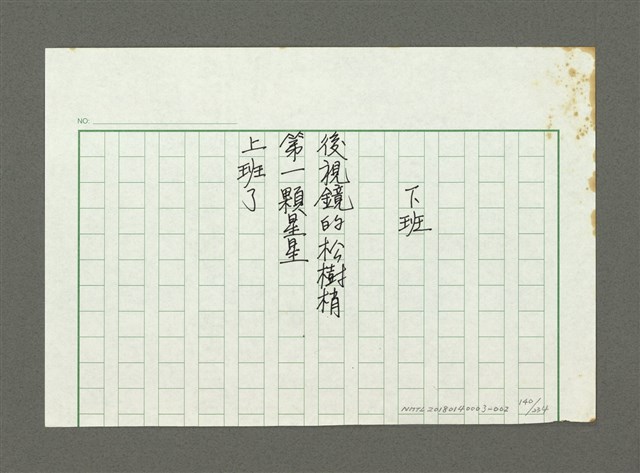 NO:
下班
後視鏡的松樹梢
第一顆星星
上班了
NMTL20180140003-002
140/234